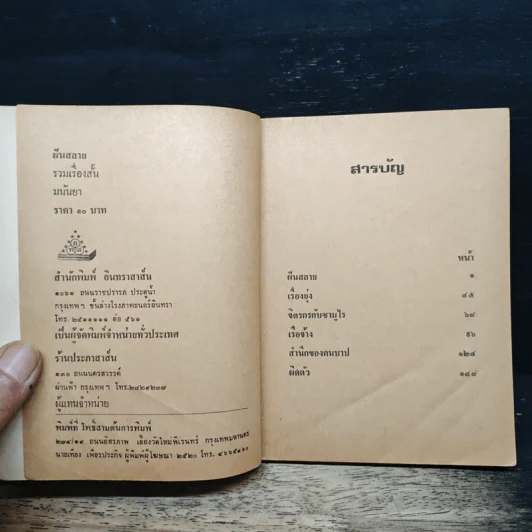 ผีนสลาย
รวมเรื่องสั้น
มนันยา
ราคา ๑๐ บาท
สำนักพิมพ์ อินทราสาส์น
๑๐๖๑ ถนนราชปรารภ ประตูน้ำ
กรุงเทพฯ ชั้นล่างโรงภาพยนตร์อินทรา
โทร. ๒๕๑๑๑๑๑ ต่อ ๕๖๑
เป็นผู้จัดพิมพ์จำหน่ายทั่วประเทศ
ร้านประภาสาส์น
๑๓๐ ถนนนครสวรรค์
ผ่านฟ้า กรุงเทพฯ โทร.๒๘๒๙๒๓๗
ผู้แทนจำหน่าย
พิมพ์ที่ โพธิ์สามต้นการพิมพ์
๒๗๔/๑๙ ถนนอิสรภาพ เยื้องวัดใหม่พิเรนทร์ กรุงเทพมหานคร
นายเที่ยง เพียรประกิจ ผู้พิมพ์ผู้โฆษณา ๒๕๒๐ โทร. ๔๖๖๕๔๖๐
สารบัญ
หน้า
ผีนสลาย ๑
เรื่องยุ่ง ๔๕
จิตรกรกับซามูไร ๖๘
เรือจ้าง ๙๖
สำนึกของคนบาป ๑๒๔
ผิดตัว ๑๔๘